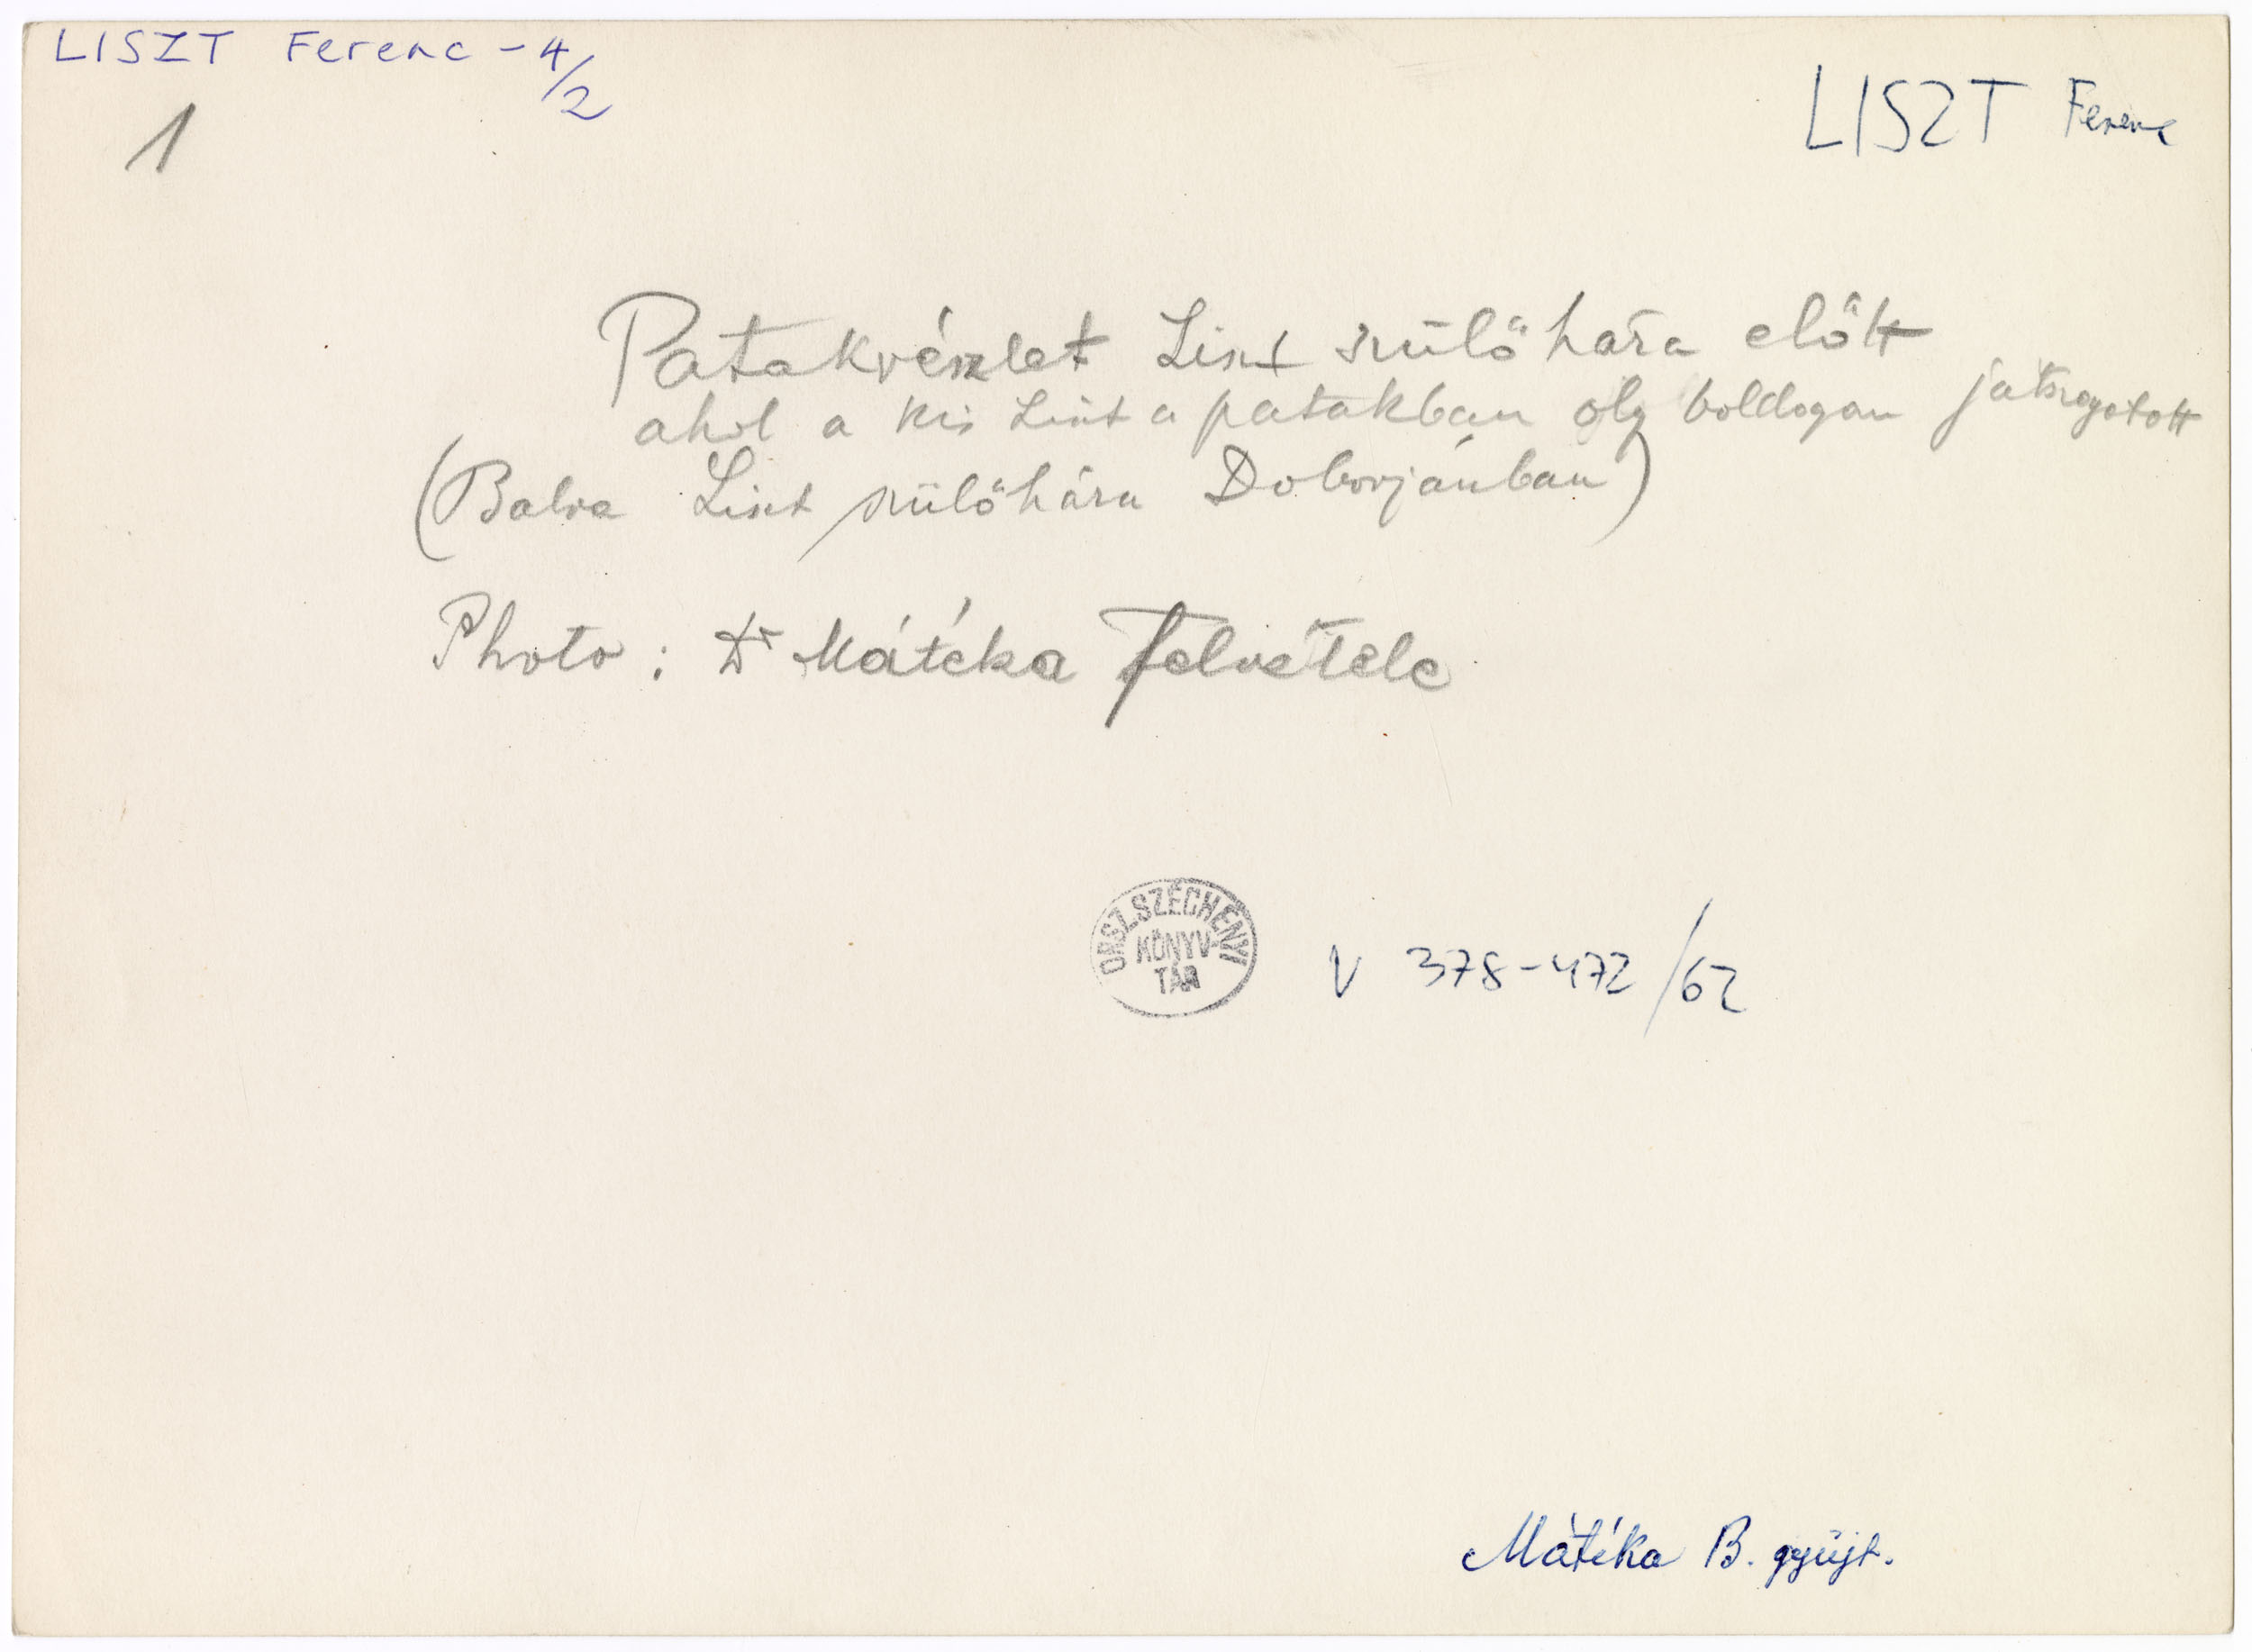 LISZT Ferenc - 4/2
LISZT Ferenc
1
Patakrészlet Liszt szülőháza előtt
ahol a kis Liszt a patakban oly boldogan játszogatott
(Balra Liszt szülőháza Doborjánban)
Photo: Dr Mátéka felvétele
ORSZ. SZÉCHÉNYI
KÖNYV
TÁR
V 378-472/62
Mátéka B. gyűjt.